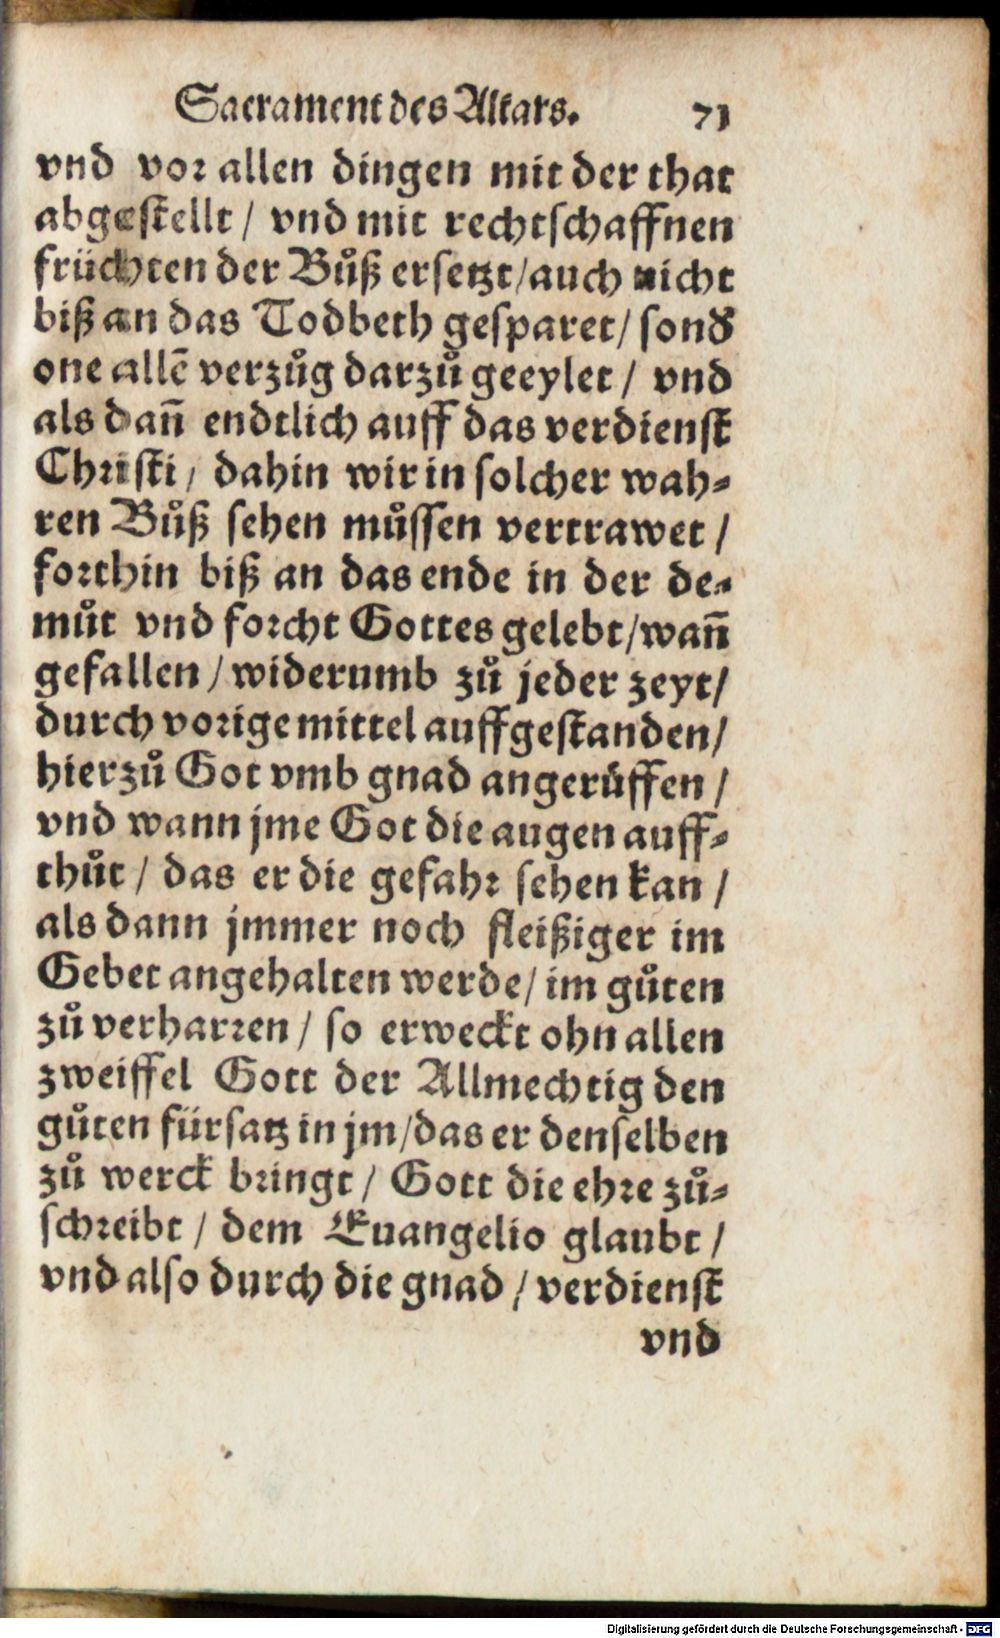 Sacrament des Altars. 71
vnd vor allen dingen mit der that
abgestellt / vnd mit rechtschaffnen
früchten der Bůß ersetzt / auch nicht
biß an das Todbeth gesparet / sond̕
one allē verzůg darzů geeylet / vnd
als dañ endtlich auff das verdienst
Christi / dahin wir in solcher wah-
ren Bůß sehen můssen vertrawet /
forthin biß an das ende in der de-
můt vnd forcht Gottes gelebt / wañ
gefallen / widerumb zů jeder zeyt /
durch vorige mittel auffgestanden /
hierzů Got vmb gnad angerůffen /
vnd wann jme Got die augen auff-
thůt / das er die gefahr sehen kan /
als dann jmmer noch fleißiger im
Gebet angehalten werde / im gůten
zů verharren / so erweckt ohn allen
zweiffel Gott der Allmechtig den
gůten fürsatz in jm / das er denselben
zů werck bringt / Gott die ehre zů-
schreibt / dem Euangelio glaubt /
vnd also durch die gnad / verdienst
vnd
Digitalisierung gefördert durch die Deutsche Forschungsgemeinschaft - DFG